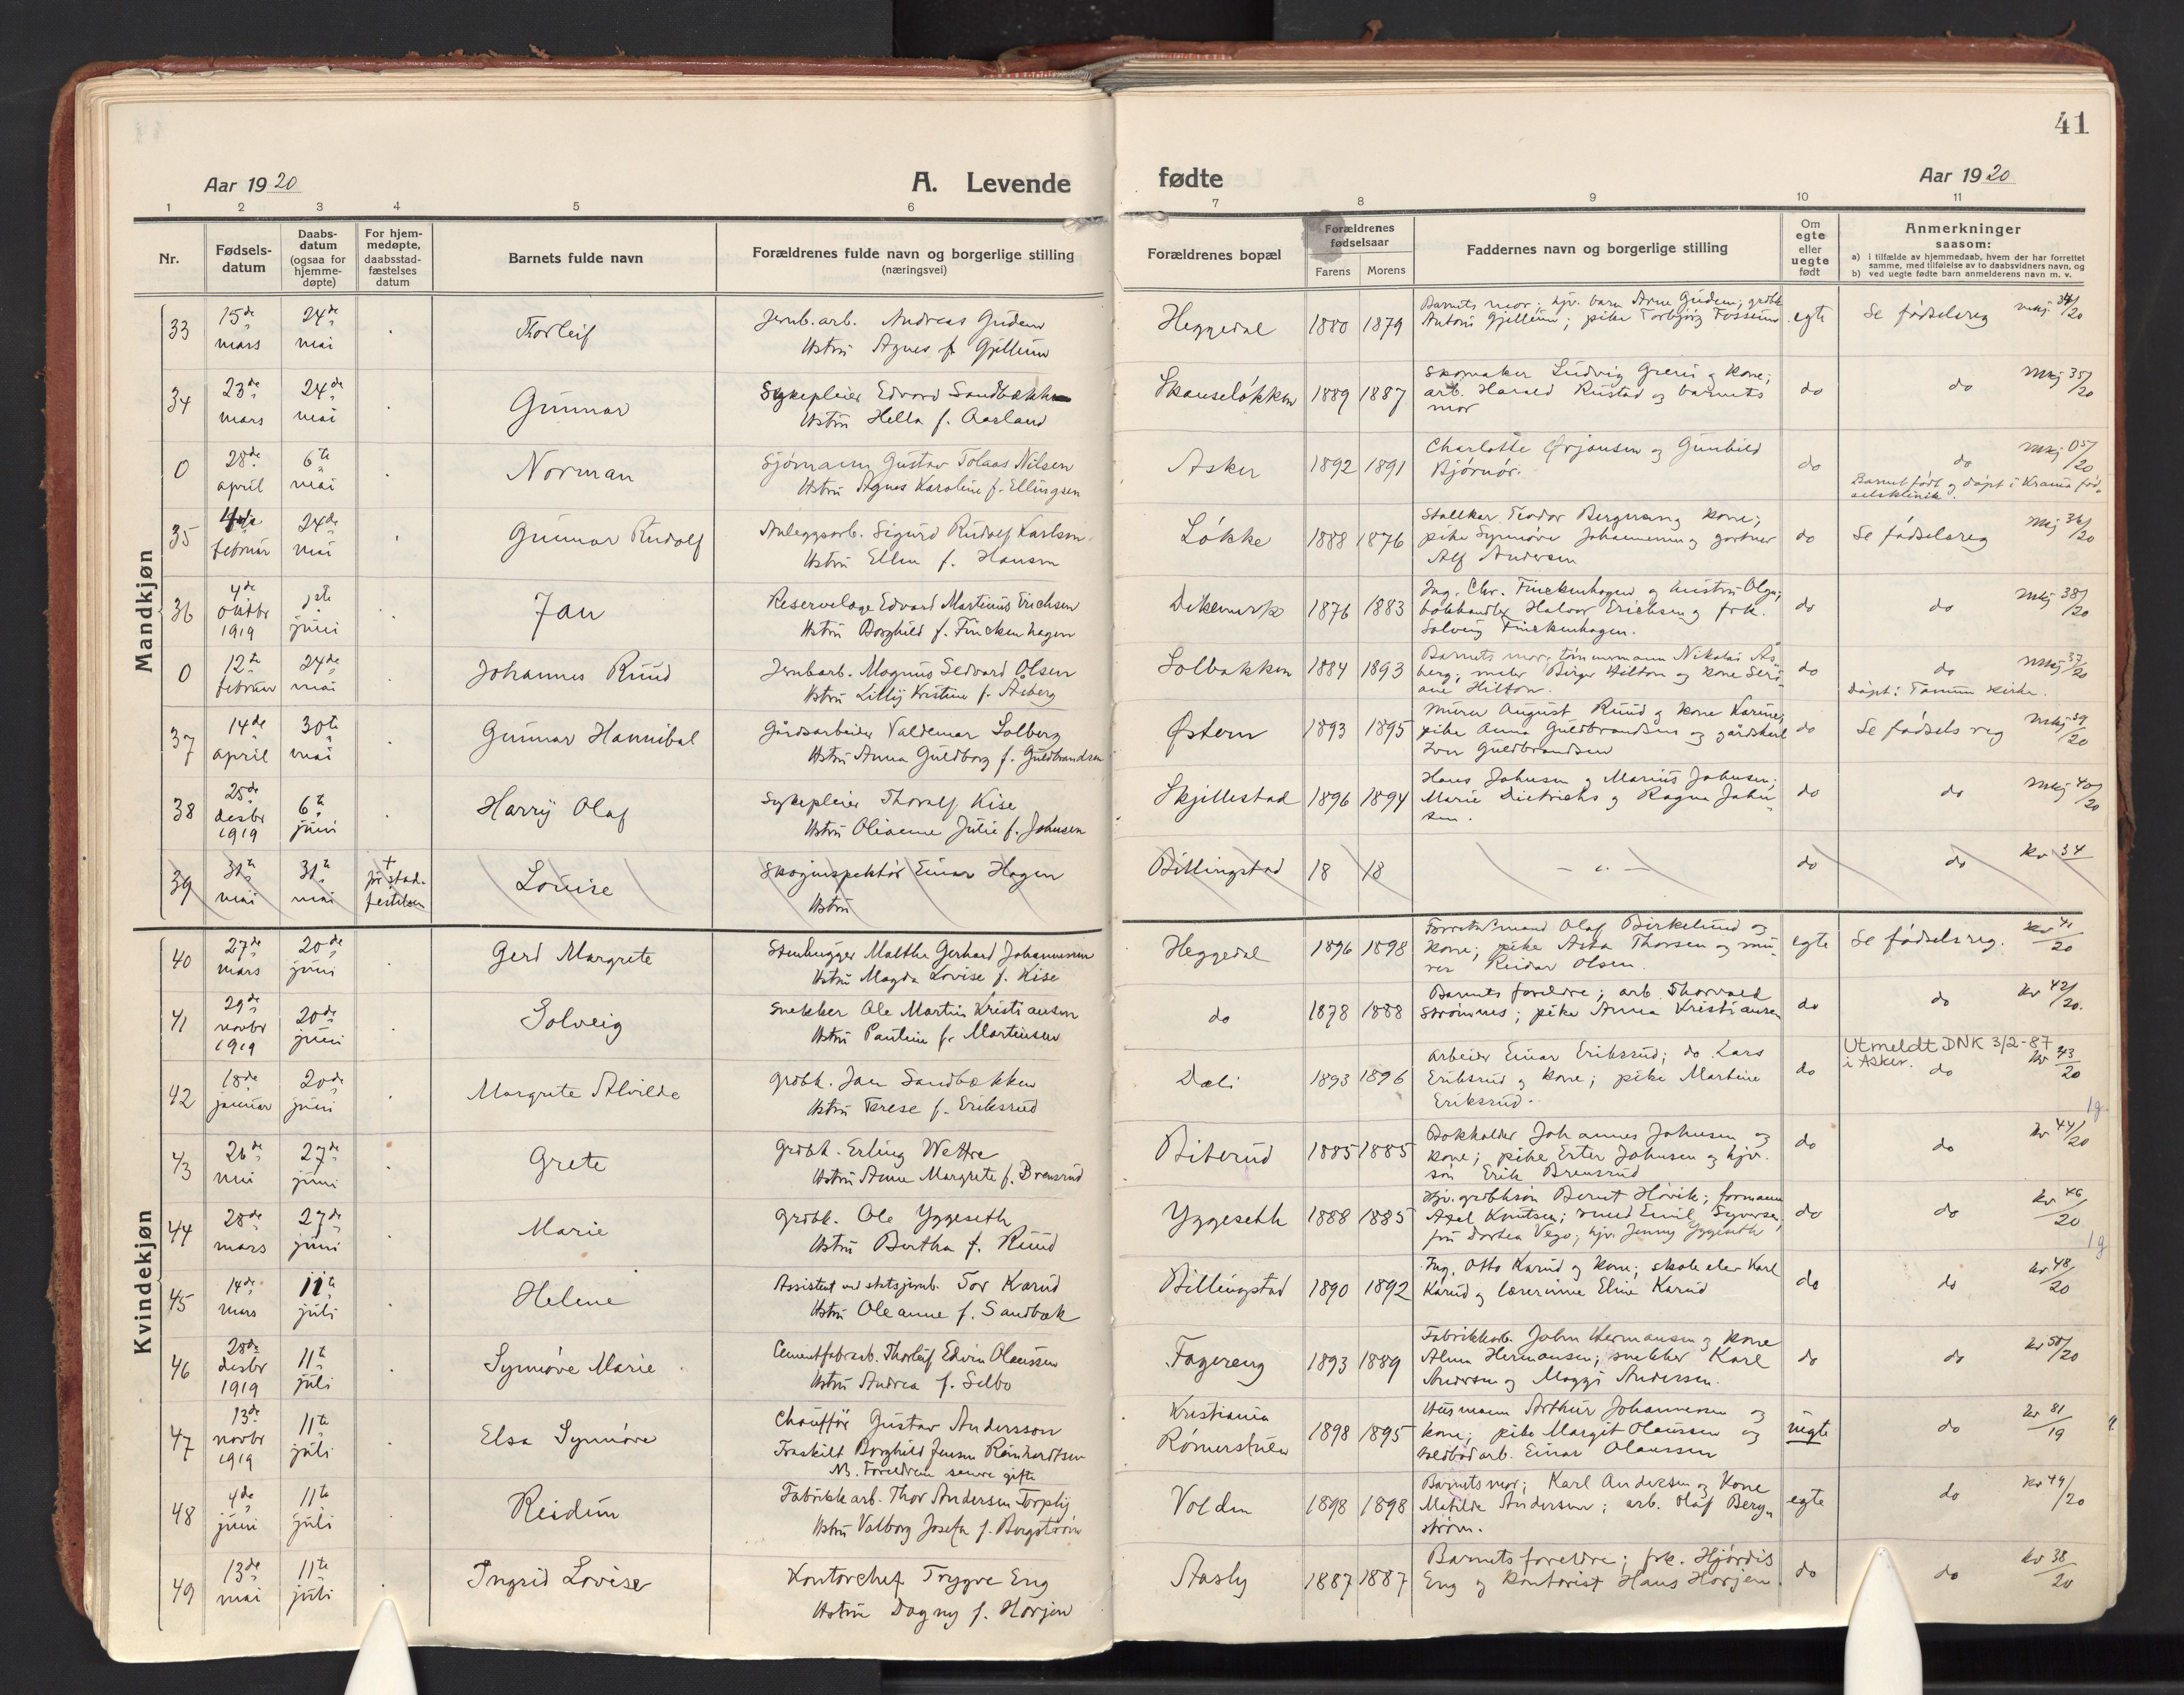 41
Aar 1920
A. Levende
fødte
Aar 1920
1 2 3 4 5 6 7 8 9 10 11
Nr.
Fødsels-
datum
Daabs-
datum
(ogsaa for
hjemme-
døpte)
For hjem-
medøpte,
daabsstad-
fæstelses
datum
Barnets fulde navn
Forældrenes fulde navn og borgerlige stilling
(næringsvei)
Forældrenes bopæl
Forældrenes
fødselsaar
Farens Morens
Faddernes navn og borgerlige stilling
Om
egte
eller
uegte
født
Anmerkninger
saasom:
a) i tilfælde av hjemmedaab, hvem der har forrettet
samme, med tilføielse av to daabsvidners navn, og
b) ved uegte fødte barn anmelderens navn m. v.
Mandkjøn
33 15de mars 24de mai Thorleif
Jernb.arb. Andreas Gudem
Hstru Agnes f. Gjellum
Heggedal 1880 1879
Barnets mor; hjv. barn Arne Gudem; grdbk.
Anton Gjellum; pike Torbjørg Fossum
egte Se fødselsreg mkj 34/20
34 23de mars 24de mai Gunnar
Sykepleier Edvard Sandbakken
Hstru Hella f. Aasland
Skauseløkken 1889 1887
Skomaker Ludvig Greni og kone;
arb. Harald Rustad og barnets
mor
do do mkj 35/20
0 28de april 6te mai Norman
Sjømann Gustav Tolaas Nilsen
Hstru Agnes Karoline f. Ellingsen
Asker 1892 1891
Charlotte Ørjansen og Gunhild
Bjørnør.
do do mkj 05/20
Barnet født og døpt i Krania fød-
selsklinik.
35 februar 24de mai Gunnar Rudolf
Anleggsarb. Sigurd Rudolf Karlsen
Hstru Ellen f. Hansen
Løkke 1888 1876
Stallkar Teodor Bergerseng kone;
pike Synnøve Johannesen og gartner
Alf Andersen
do Se fødselsreg mkj 36/20
36 4de oktbr 1919 juni Jan
Reservelæge Edvard Martinius Erichsen
Hstru Borghild f. Finckenhagen
Dikemark 1876 1883
Ing. Chr. Finckenhagen og hustru Olga;
bokhandler Halvor Erichsen og frk.
Solveig Finckenhagen.
do do mkj 38/20
0 12te februar 24de mai Johannes Ruud
Jernbarb. Magnus Sedvard Olsen
Hstru Lilly Kristine f. Åsberg
Solbakken 1884 1893
Barnets mor; tømmermann Nikolai Ås-
berg; maler Birger Hilton og kone Seri-
ane Hilton.
do do mkj 37/20
Døpt i Tanum kirke.
37 14de april 30te mai Gunnar Hannibal
Gårdsarbeider Valdemar Solberg
Hstru Anna Guldborg f. Guldbrandsen
Østern 1893 1895
Murer August Ruud og kone Karine;
pike Anna Guldbrandsen og gårdskarl
Iver Guldbrandsen
do Se fødselsreg mkj 39/20
38 25de desbr 1919 6te juni Harry Olaf
Sykepleier Thoralf Kise
Hstru Olianne Julie f. Johnsen
Skjillestad 1896 1894
Hans Johnsen og Marius Johnsen;
Marie Dietrichs og Ragna John-
sen.
do do mkj 40/20
39 31te mai 31te mai + før stad-
festelsen
Louise
Skoginspektør Einar Hagen
Hstru
Billingstad 18 18
do do kv 34
Kvindekjøn
40 27de mars 20de juni Gerd Margrete
Stenhugger Malthe Gerhard Johannesen
Hstru Magda Lovise f. Kise
Heggedal 1896 1898
Olaf Birkelund og
kone; pike Asta Thorsen og mu-
rer Reidar Olsen.
egte Se fødselsreg. kv 41/20
41 29de novbr 1919 20de juni Solveig
Snekker Ole Martin Kristiansen
Hstru Pauline f. Martinsen
do 1878 1888
Barnets foreldre; arb. Thorvald
Strømnes; pike Anna Kristiansen
do do kv 42/20.
42 18de januar 20de juni Margrete Alvilde
Grdbk. Jan Sandbakken
Hstru Terese f. Eriksrud
Dæli 1893 1896
Arbeider Einar Eriksrud; do Lars
Eriksrud og kone; pike Martine
Eriksrud.
do
Utmeldt DNK 3/2-87
i Asker. do kv 43/20
1g.
43 26de mai 27de juni Grete
Grdbk. Erling Wettre
Hstru Anne Margrete f. Brensrud
Biterud 1885 1885
Bokholder Johannes Johnsen og
kone; pike Ester Johnsen og hjv.
søn Erik Brensrud
do do kv 44/20
44 28de mars 27de juni Marie
Grdbk. Ole Yggeseth
Hstru Bertha f. Ruud
Yggeseth 1888 1885
Hjv. grdbksøn Bernt Høvik; formann
Axel Knutsen; smed Emil Syversen,
fru Dortea Vego; hjv. Jenny Yggeseth
do do kv 46/20
1g
45 14de mars 11te juli Helene
Assistent ved statsjernb. Tor Karud
Hstru Oleanne f. Sandbæk
Billingstad 1890 1892
Ing. Otto Karud og kone; skoleelev Karl
Karud og lærerinne Eline Karud
do do kv 48/20
46 28de desbr 1919 11te juli Synnøve Marie
Cementfabrarb. Thorleif Edvin Olaussen
Hstru Andrea f. Selbo
Fagereng 1893 1889
Fabrikkarb. John Hermansen og kone
Alma Hermansen; snekker Karl
Andersen og Maggi Andersen.
do do kv 50/20
47 13de novbr 1919 11te juli Elsa Synnøve
Chauffør Gustav Andersson
Fraskilt Borghild Jensen Reinhardtsen
NB. Foreldrene senere gifte
Kristiania
Rømerstuen 1898 1895
Husmann Arthur Johannesen og
kone; pike Margit Olaussen og
Einar Olaussen
uegte do kv 81/19
48 4de juni 11te juli Reidun
Fabrikkarb. Thor Andersen Torplij
Hstru Valborg Josefa f. Bergstrøm
Volden 1898 1898
Barnets mor; Karl Andersen og kone
Matilde Andersen; arb. Olaf Berg-
strøm.
egte do kv 49/20
49 13de mai 11te juli Ingrid Lovise
Kontorchef Trygve Eng
Hstru Dagny f. Horjen
Aasly 1887 1887
Barnets foreldre; frk. Hjørdis
Eng og kontorist Hans Horjen.
do do kv 38/20